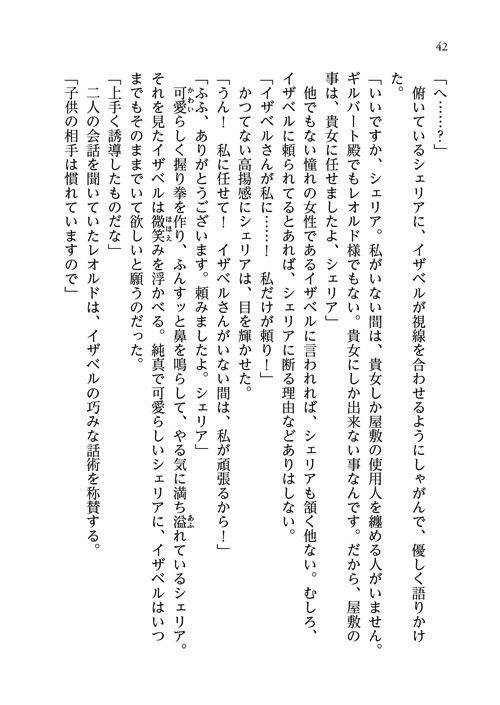 42
「へ……？」
　俯いているシェリアに、イザベルが視線を合わせるようにしゃがんで、優しく語りかけ
た。
「いいですか、シェリア。私がいない間は、貴女しか屋敷の使用人を纏める人がいません。
ギルバート殿でもレオルド様でもない。貴女にしか出来ない事なんです。だから、屋敷の
事は、貴女に任せましたよ、シェリア」
　他でもない憧れの女性であるイザベルに言われれば、シェリアも頷く他ない。むしろ、
イザベルに頼られてるとあれば、シェリアに断る理由などありはしない。
「イザベルさんが私に……！　私だけが頼り！」
　かつてない高揚感にシェリアは、目を輝かせた。
「うん！　私に任せて！　イザベルさんがいない間は、私が頑張るから！」
「ふふ、ありがとうございます。頼みましたよ。シェリア」
　可愛かわいらしく握り拳を作り、ふんすッと鼻を鳴らして、やる気に満ち溢あふれているシェリア。
それを見たイザベルは微笑ほほえみを浮かべる。純真で可愛らしいシェリアに、イザベルはいつ
までもそのままでいて欲しいと願うのだった。
「上手く誘導したものだな」
　二人の会話を聞いていたレオルドは、イザベルの巧みな話術を称賛する。
「子供の相手は慣れていますので」